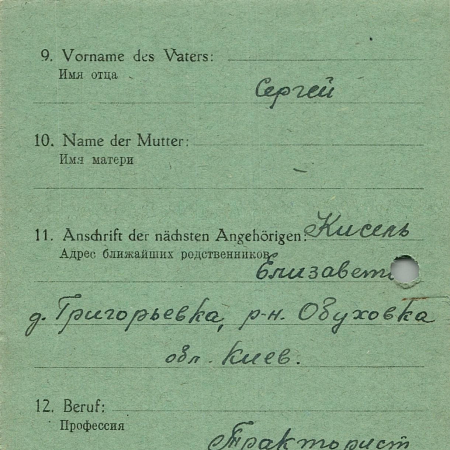 9. Vorname des Vaters:
Имя отца
Сергей
10. Name der Mutter:
Имя матери
11. Anschrift der nächsten Angehörigen: Кисель
Адрес ближайших родственников
Елизавет
д. Григорьевка, р-н. Обуховка
обл. Киев.
12. Beruf:
Профессия
Тракторист